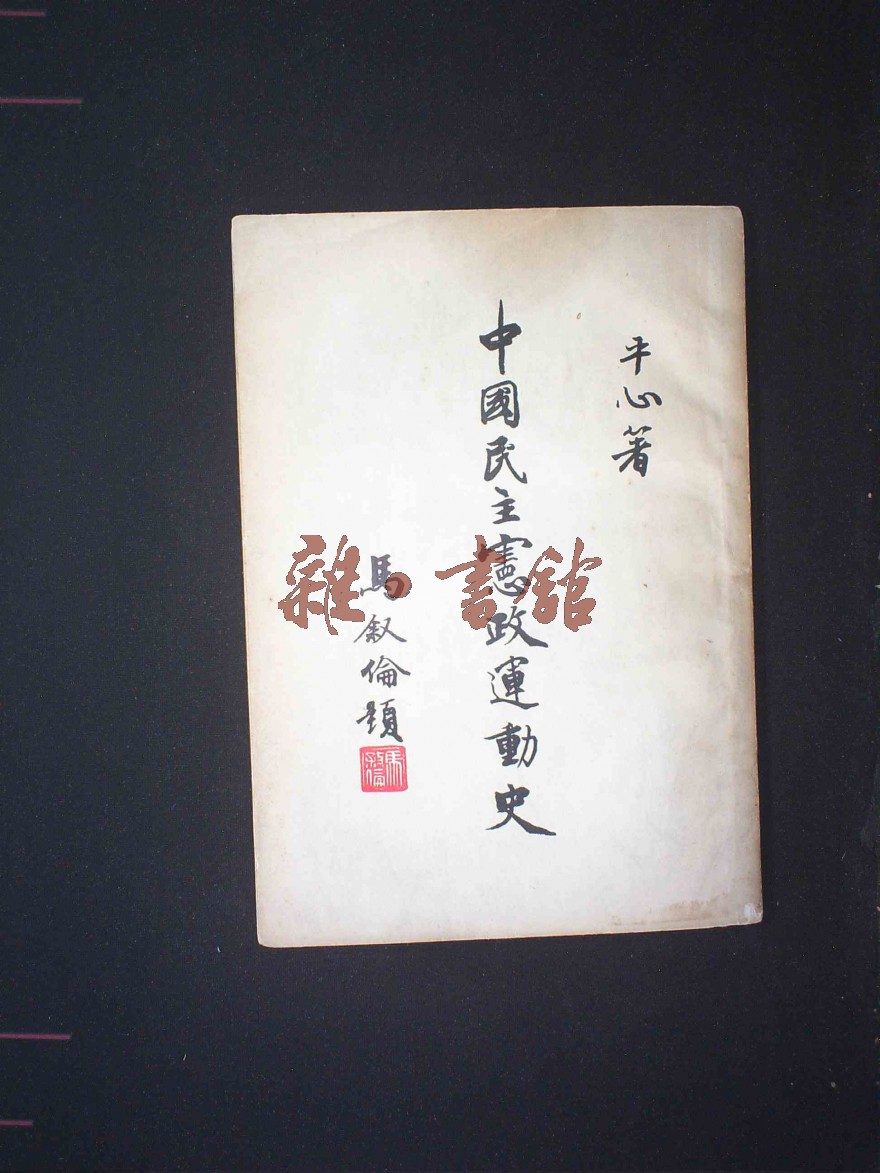 平心著
中國民主憲政運動史
馬叙倫題
馬叙倫
雜書館